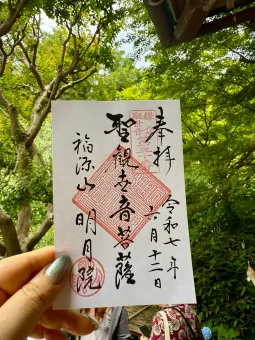 奉拝
令和七年
六月十二日
聖観世音菩薩
福源山
明月院